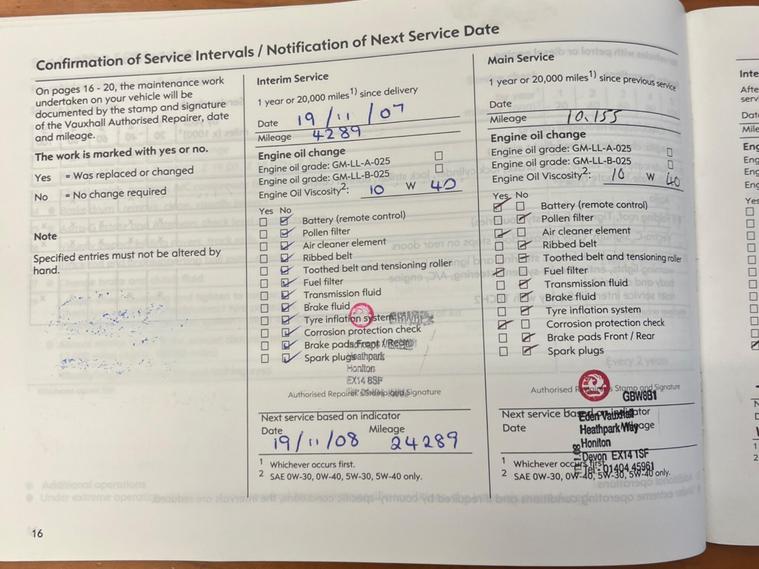 Confirmation of Service Intervals / Notification of Next Service Date
On pages 16 - 20, the maintenance work
undertaken on your vehicle will be
documented by the stamp and signature
of the Vauxhall Authorised Repairer, date
and mileage.
The work is marked with yes or no.
Yes = Was replaced or changed
No = No change required
Note
Specified entries must not be altered by
hand.
Interim Service
1 year or 20,000 miles1) since delivery
Date 19/11/07
Mileage 4289
Engine oil change
Engine oil grade: GM-LL-A-025
Engine oil grade: GM-LL-B-025
Engine Oil Viscosity2: 10 W 40
Yes No
Battery (remote control)
Pollen filter
Air cleaner element
Ribbed belt
Toothed belt and tensioning roller
Fuel filter
Transmission fluid
Brake fluid
Tyre inflation system
Corrosion protection check
Brake pads Front / Rear
Spark plugs
Heathpark
Honiton
EX14 8SP
Authorised Repairer Signature
Next service based on indicator
Date Mileage
19/11/08 24289
1 Whichever occurs first.
2 SAE 0W-30, 0W-40, 5W-30, 5W-40 only.
Main Service
1 year or 20,000 miles1) since previous service
Date
Mileage 10.155
Engine oil change
Engine oil grade: GM-LL-A-025
Engine oil grade: GM-LL-B-025
Engine Oil Viscosity2: 10 W 40
Yes No
Battery (remote control)
Pollen filter
Air cleaner element
Ribbed belt
Toothed belt and tensioning roller
Fuel filter
Transmission fluid
Brake fluid
Tyre inflation system
Corrosion protection check
Brake pads Front / Rear
Spark plugs
Authorised Stamp and Signature
GBW8B1
Next service based on indicator
Eden Vauxhall
Date
Heathpark Way
Honiton
Devon EX14 1SF
Tel: 01404 45961
1 Whichever occurs first.
2 SAE 0W-30, 0W-40, 5W-30, 5W-40 only.
16